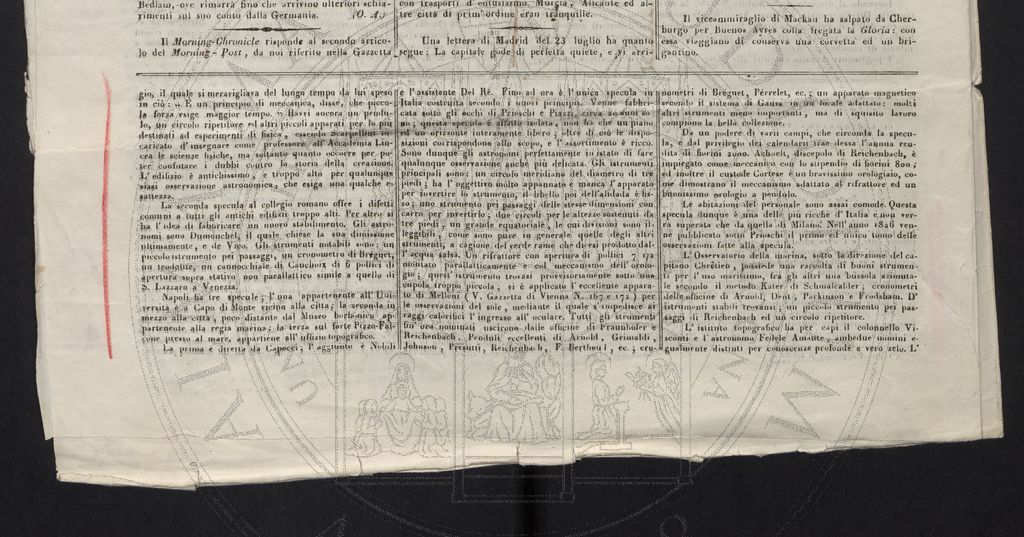 Bedlam, ove rimarrà fino che arrivino ulteriori schia-
rimenti sul suo conto dalla Germania. (O. A.)
Il Morning-Chronicle risponde al secondo artico-
lo del Morning-Post, da noi riferito nella Gazzetta
con trasporti d'entusiasmo. Murcia, Alicante ed al-
tre città di prim'ordine eran tranquille.
Una lettera di Madrid del 23 luglio ha quanto
segue: La capitale gode di perfetta quiete, e vi arri-
Il viceammiraglio di Mackau ha salpato da Cher-
burgo per Buenos Ayres colla fregata la Gloria: con
essa viaggiano di conserva una corvetta ed un bri-
gantino.
gio, il quale si meravigliava del lungo tempo da lui speso
in ciò: „ È un principio di meccanica, disse, che picco-
la forza esige maggior tempo. „ Havvi ancora un pendu-
lo, un circolo ripetitore ed altri piccoli apparati per lo più
destinati ad esperimenti di fisica, essendo Scarpellini in-
caricato d'insegnare come professore all'Accademia Lin-
cea le scienze fisiche, ma soltanto quanto occorre per po-
ter confutare i dubbi contro la storia della creazione.
L'edifizio è antichissimo, e troppo alto per qualunque
siasi osservazione astronomica, che esiga una qualche e-
sattezza.
La seconda specula al collegio romano offre i difetti
comuni a tutti gli antichi edifizi troppo alti. Per altro si
ha l'idea di fabbricare un nuovo stabilimento. Gli astro-
nomi sono Dumouchel, il quale chiese la sua dimissione
ultimamente, e de Vico. Gli strumenti notabili sono: un
piccolo istrumento pei passaggi, un cronometro di Bréguet,
un teodolite, un cannocchiale di Cauchoix di 6 pollici di
apertura sopra stativo non parallattico simile a quello di
S. Lazzaro a Venezia.
Napoli ha tre specule; l'una appartenente all'Uni-
versità è a Capo di Monte vicino alla città; la seconda in
mezzo alla città, poco distante dal Museo borbonico ap-
partenente alla regia marina; la terza sul forte Pizzo-Fal-
cone presso al mare, appartiene all'uffizio topografico.
La prima è diretta da Capocci; l'aggiunto è Nobili
e l'assistente Del Rè. Fino ad ora è l'unica specula in
Italia costruita secondo i nuovi principi. Venne fabbri-
cata sotto gli occhi di Prioschi e Piazzi, circa 20 anni so-
no; questa specula è affatto isolata, non ha che un piano
ed un orizzonte interamente libero; oltre di ciò le dispo-
sizioni corrispondono allo scopo, e l'assortimento è ricco.
Sono dunque gli astronomi perfettamente in istato di fare
qualunque osservazione anche più delicata. Gli strumenti
principali sono: un circolo meridiano del diametro di tre
piedi; ha l'oggettivo molto appannato e manca l'apparato
per invertire lo strumento, il libello poi dell'alidada è fis-
so; uno strumento pei passaggi delle stesse dimensioni con
carro per invertirlo; due circoli per le altezze sostenuti da
tre piedi, un grande equatoriale, le cui divisioni sono il-
leggibili, come sono pure in generale quelle degli altri
strumenti, a cagione del verde rame che deesi prodotto dal-
l'acqua salsa. Un rifrattore con apertura di pollici 7 1/2
montato parallatticamente e col meccanismo dell'orolo-
gio; quest'istrumento trovasi provvisoriamente sotto una
cupola troppo piccola; vi è applicato l'eccellente appara-
to di Melloni (V. Gazzetta di Vienna N. 167 e 172) per
le osservazioni del sole, mediante il quale s'impedisce ai
raggi calorifici l'ingresso all'oculare. Tutti gli strumenti
fin'ora nominati uscirono dalle officine di Fraunhofer e
Reichenbach. Penduli eccellenti di Arnold, Grimaldi,
Johnson, Presutti, Reichenbach, F. Berthoul, ec.; cro-
nometri di Bréguet, Perrelet, ec.; un apparato magnetico
secondo il sistema di Gauss in un locale adattato: molti
altri strumenti meno importanti, ma di squisito lavoro
compiono la bella collezione.
Da un podere di varii campi, che circonda la specu-
la, e dal privilegio dei calendarii trae dessa l'annua ren-
dita di fiorini 2000. Achuelt, discepolo di Reichenbach, è
impiegato come meccanico con lo stipendio di fiorini 800;
ed inoltre il custode Cortese è un bravissimo orologiaio, co-
me dimostrano il meccanismo adattato al rifrattore ed un
buonissimo orologio a pendulo.
Le abitazioni del personale sono assai comode. Questa
specula dunque è una delle più ricche d'Italia e non ver-
rà superata che da quella di Milano. Nell'anno 1826 ven-
ne pubblicato sotto Prioschi il primo ed unico tomo delle
osservazioni fatte alla specula.
L'Osservatorio della marina, sotto la direzione del ca-
pitano Chrétien, possiede una raccolta di buoni strumen-
ti per l'uso marittimo, fra gli altri una bussola azimuta-
le secondo il metodo Kater di Schmalcalder; cronometri
delle officine di Arnold, Dent, Parkinson e Frodsham. D'
istrumenti stabili trovansi; un piccolo strumento pei pas-
saggi di Reichenbach ed un circolo ripetitore.
L'istituto topografico ha per capi il colonnello Vi-
sconti e l'astronomo Fedele Amante, ambedue uomini e-
gualmente distinti per conoscenze profonde e vero zelo. L'